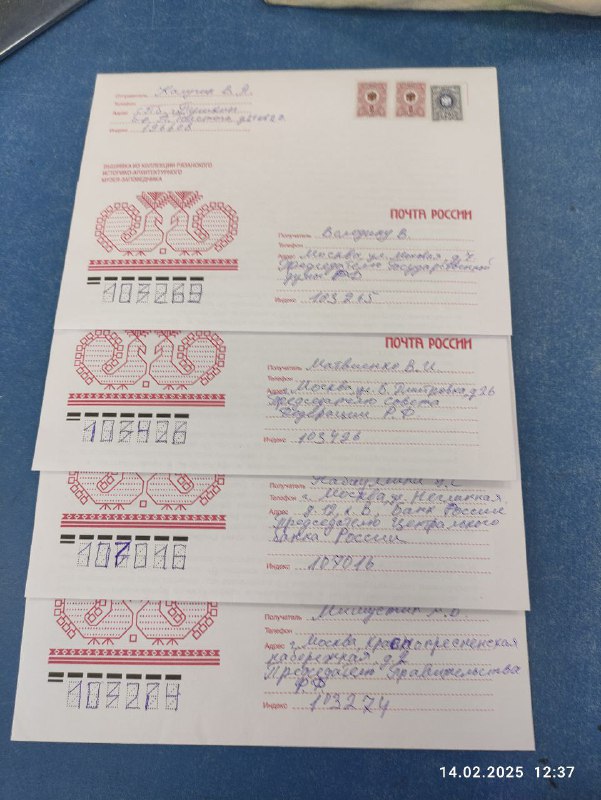 Отправитель Калугин В. Я.
Телефон
Адрес СПб, г. Пушкин
Индекс 196608
ВЫШИВКА ИЗ КОЛЛЕКЦИИ РЯЗАНСКОГО
ИСТОРИКО-АРХИТЕКТУРНОГО
МУЗЕЯ-ЗАПОВЕДНИКА
ПОЧТА РОССИИ
Получатель Володину В.
Телефон
Адрес Москва ул. Моховая д. 7
Председателю Государственной
думы РФ
Индекс 103265
103265
ПОЧТА РОССИИ
Получатель Матвиенко В. И.
Телефон
Адрес Москва ул. Б. Дмитровка, д 26
Председателю Совета
Федерации РФ
Индекс 103426
103426
Получатель
Телефон г. Москва, ул. Неглинная,
Адрес д. 12, к. В, Банк России
Председателю Центрального
банка России
Индекс 107016
107016
Получатель
Телефон
Адрес г. Москва, Краснопресненская
набережная, д. 2
Правительства
РФ
Индекс 103274
103274
14.02.2025 12:37